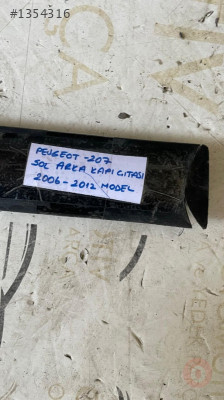 #1354316
PEUGEOT - 207
SOL ARKA KAPI CITASI
2006-2012 MODEL